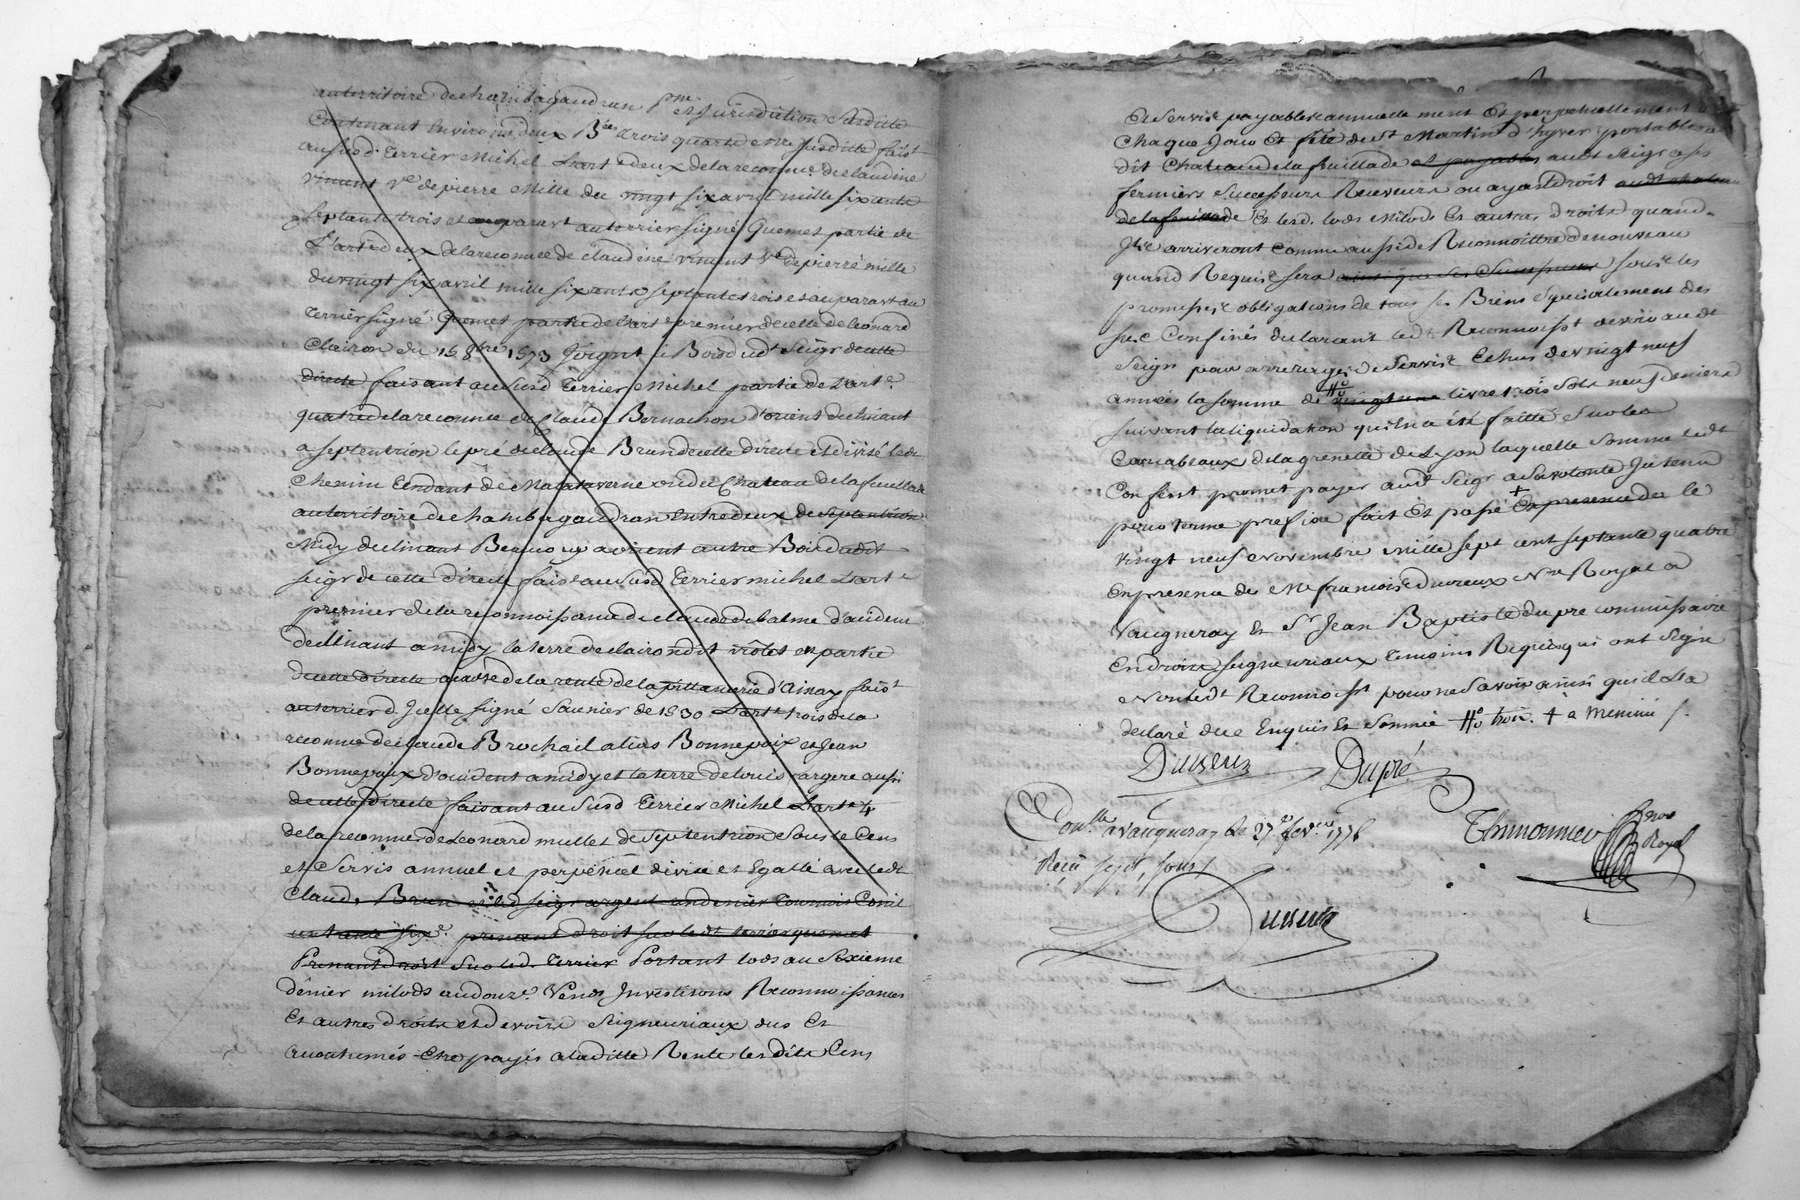 au territoire de chambagaudran pme et Jurisdiction Susditte
Contenant Environ deux B.ées trois quarts me susditte fais.t
au susd. Terrier Michel L'art.e deux de la reconnce de claudine
vincent v.e de pierre Mille du vingt six avril mille six cents
septante trois et auparav.t au terrier signé Quemet partie de
L'art.e deux de la reconnce de claudine vincent V.e de pierre mille
du vingt six avril mille six cents septante trois et auparav.t au
terrier signé Quemet partie de l'art.e premier de celle de leonard
Clairon du 15 8bre 1573 Joignt le Bois dudt Seigr de cette
directe faisant au susd Terrier Michel partie de L'art.e
quatre de la reconnce de Claude Bernachon d'orient declinant
a septentrion le pré de claude Brun de cette directe et divisé le dt
Chemin Tendant de Malataverne au dt Chateau de la feuillade
au territoire de chambagaudran Entredeux de septentrion
Midy declinant Beaucoup a orient autre Bois dudit
seigr de cette directe fais.t au susd Terrier michel L'art.e
premier de la reconnoissance de claude de balme d'occident
declinant a midy la terre de clairon dit violet en partie
de cette directe a cause de la rente de la pittancerie d'Ainay fais.t
au terrier d. Jcelle signé Saunier de 1530 L'art.e trois de la
reconnce de claude Brochail alias Bonnevoix et Jean
Bonnevoix d'occident a midy et la terre de louis rargere aussi
de cette directe faisant au susd Terrier Michel L'art.e 4
de la reconnce de Leonard mullet de septentrion Sous le Cens
et Servis annuel et perpetuel divisé et Egallé avec ledt
Claude Brun et led seigr argent un denier Tournois Conil
un tants six.e prenant droit sur ledt terrier quemet
Prenant droit Sur led. Terrier Portant lods au Sixieme
denier milods au douz.e Venes Investisons Reconnoissances
Et autres droits et devoirs Seigneuriaux dus Et
accoutumés Etre payés a laditte Rente lesdits Cens
et Servis payables annuellement Et perpetuellement a
Chaque Jour Et fête de st Martin d'hyver portables au
dit Chateau de la feuillade et payables audt Seigr a ses
fermiers successeurs Receveurs ou ayant droit audt chateau
de la feuillade Et lesd. lods Milods Et autres droits quand
Jls arriveront Comme aussi de Reconnoittre de nouveau
quand Requis sera ainsi que ses Successeurs sous les
promises obligations de tous ses Biens Especialement des
sus Confinés declarant ledt Reconnoisst devoir audt
Seigr pour arrerages de Servis Echus de vingt neuf
années la somme de Ho vingt une livre trois Sols neuf deniers
suivant la liquidation qu'il n'a été faitte Sur les
Carcabeaux de la grenette de Lyon laquelle Somme ledt
Confesst promet payer audt Seigr a Sa volonté Jcetenu
pour terme prefixe fait Et passé + En presence de le
vingt neuf novembre mille sept cent septante quatre
En presence de Me francois Duvreux Nre Royal a
Vaugneray Et Sr Jean Baptiste dupré commissaire
En droits seigneuriaux temoins Requis qui ont signé
Non ledt Reconnoisst pour ne Savoir ainsi qu'il l'a
declaré de ce Enquis Et Sommé Ho trois. + a Memini
Duvreux Dupré
Thimonnier nre Royal
Con.llé a vaugneray le 27e fevrier 1776
Recu sept sous
Duvreux